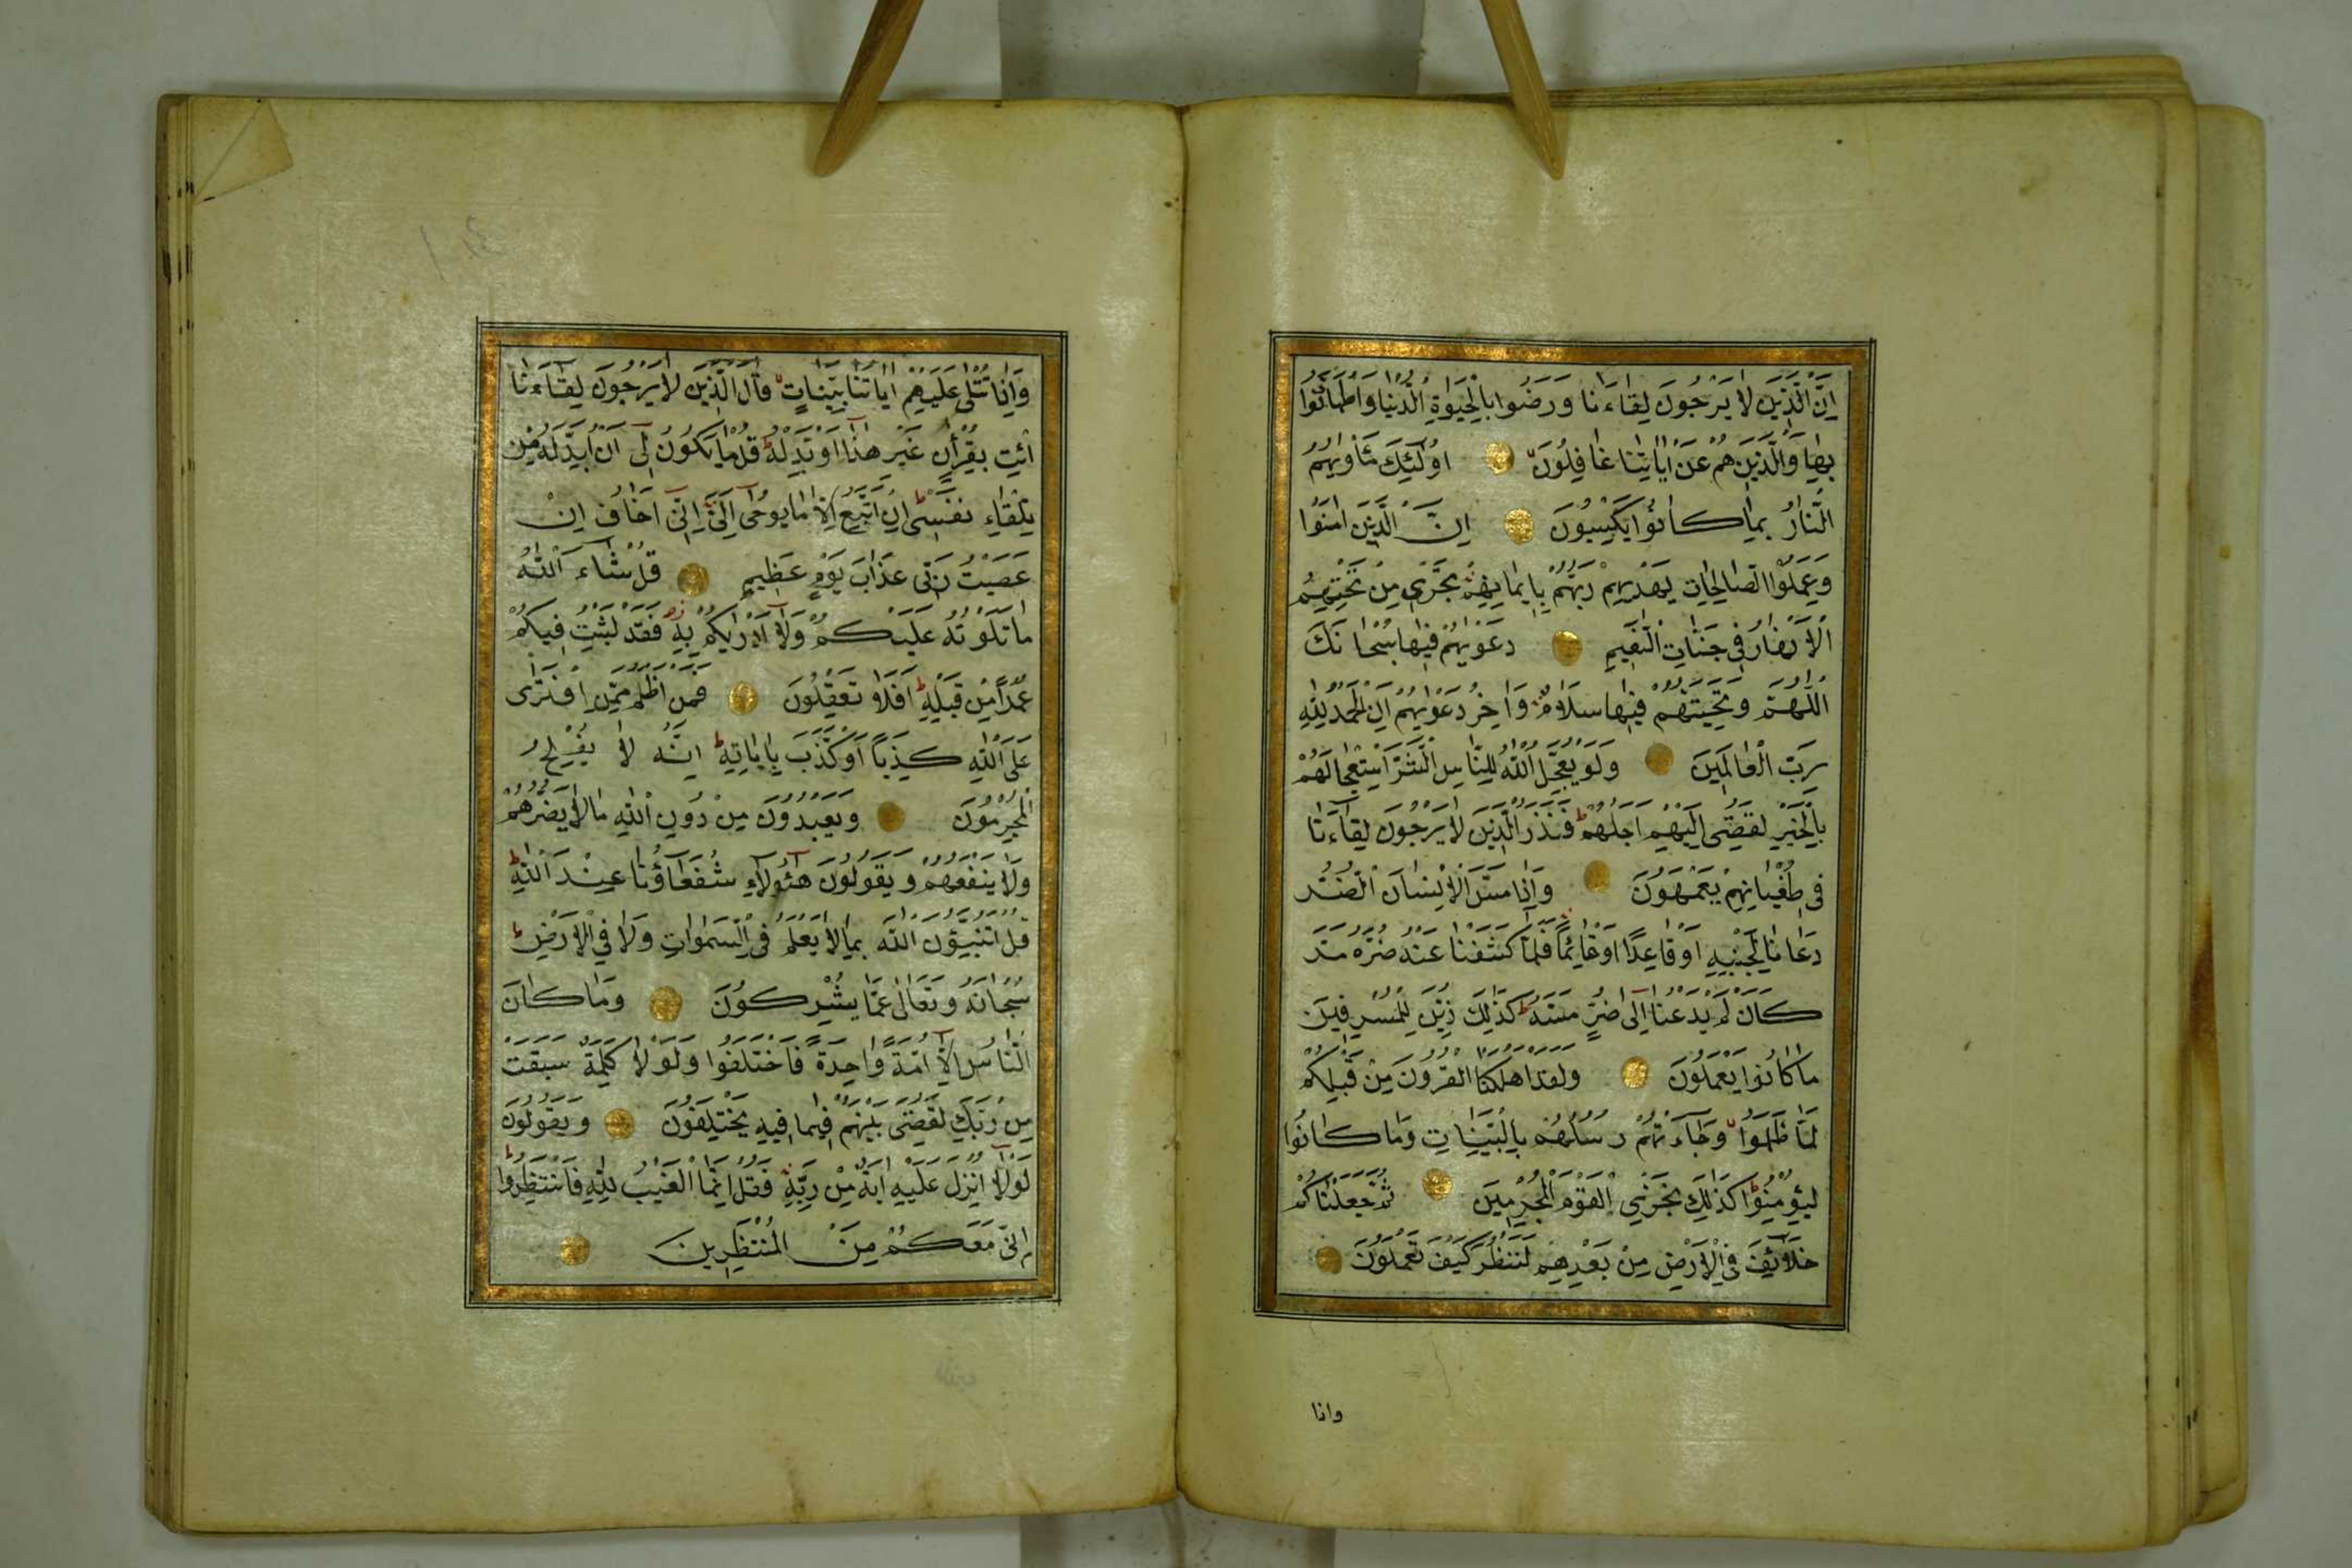 اِنَّ الَّذٖينَ لَا يَرْجُونَ لِقَاءَنَا وَرَضُوا بِالْحَيٰوةِ الدُّنْيَا وَاطْمَاَنُّوا
بِهَا وَالَّذٖينَ هُمْ عَنْ اٰيَاتِنَا غَافِلُونَ اُولٰٓئِكَ مَاْوٰيهُمُ
النَّارُ بِمَا كَانُوا يَكْسِبُونَ اِنَّ الَّذٖينَ اٰمَنُوا
وَعَمِلُوا الصَّالِحَاتِ يَهْدٖيهِمْ رَبُّهُمْ بِاٖيمَانِهِمْ تَجْرٖى مِنْ تَحْتِهِمُ
الْاَنْهَارُ فٖى جَنَّاتِ النَّعٖيمِ دَعْوٰيهُمْ فٖيهَا سُبْحَانَكَ
اللّٰهُمَّ وَتَحِيَّتُهُمْ فٖيهَا سَلَامٌ وَاٰخِرُ دَعْوٰيهُمْ اَنِ الْحَمْدُ لِلّٰهِ
رَبِّ الْعَالَمٖينَ وَلَوْ يُعَجِّلُ اللّٰهُ لِلنَّاسِ الشَّرَّ اسْتِعْجَالَهُمْ
بِالْخَيْرِ لَقُضِىَ اِلَيْهِمْ اَجَلُهُمْ فَنَذَرُ الَّذٖينَ لَا يَرْجُونَ لِقَاءَنَا
فٖى طُغْيَانِهِمْ يَعْمَهُونَ وَاِذَا مَسَّ الْاِنْسَانَ الضُّرُّ
دَعَانَا لِجَنْبِهٖ اَوْ قَاعِدًا اَوْ قَائِمًا فَلَمَّا كَشَفْنَا عَنْهُ ضُرَّهُ مَرَّ
كَاَنْ لَمْ يَدْعُنَا اِلٰى ضُرٍّ مَسَّهُ كَذٰلِكَ زُيِّنَ لِلْمُسْرِفٖينَ
مَا كَانُوا يَعْمَلُونَ وَلَقَدْ اَهْلَكْنَا الْقُرُونَ مِنْ قَبْلِكُمْ
لَمَّا ظَلَمُوا وَجَاءَتْهُمْ رُسُلُهُمْ بِالْبَيِّنَاتِ وَمَا كَانُوا
لِيُؤْمِنُوا كَذٰلِكَ نَجْزِى الْقَوْمَ الْمُجْرِمٖينَ ثُمَّ جَعَلْنَاكُمْ
خَلَائِفَ فِى الْاَرْضِ مِنْ بَعْدِهِمْ لِنَنْظُرَ كَيْفَ تَعْمَلُونَ
واذا
وَاِذَا تُتْلٰى عَلَيْهِمْ اٰيَاتُنَا بَيِّنَاتٍ قَالَ الَّذٖينَ لَا يَرْجُونَ لِقَاءَنَا
ائْتِ بِقُرْاٰنٍ غَيْرِ هٰذَا اَوْ بَدِّلْهُ قُلْ مَا يَكُونُ لٖى اَنْ اُبَدِّلَهُ مِنْ
تِلْقَاءِ نَفْسٖى اِنْ اَتَّبِعُ اِلَّا مَا يُوحٰى اِلَىَّ اِنّٖى اَخَافُ اِنْ
عَصَيْتُ رَبّٖى عَذَابَ يَوْمٍ عَظٖيمٍ قُلْ لَوْ شَاءَ اللّٰهُ
مَا تَلَوْتُهُ عَلَيْكُمْ وَلَا اَدْرٰيكُمْ بِهٖ فَقَدْ لَبِثْتُ فٖيكُمْ
عُمُرًا مِنْ قَبْلِهٖ اَفَلَا تَعْقِلُونَ فَمَنْ اَظْلَمُ مِمَّنِ افْتَرٰى
عَلَى اللّٰهِ كَذِبًا اَوْ كَذَّبَ بِاٰيَاتِهٖ اِنَّهُ لَا يُفْلِحُ
الْمُجْرِمُونَ وَيَعْبُدُونَ مِنْ دُونِ اللّٰهِ مَا لَا يَضُرُّهُمْ
وَلَا يَنْفَعُهُمْ وَيَقُولُونَ هٰٓؤُلَاءِ شُفَعَاؤُنَا عِنْدَ اللّٰهِ
قُلْ اَتُنَبِّؤُنَ اللّٰهَ بِمَا لَا يَعْلَمُ فِى السَّمٰوَاتِ وَلَا فِى الْاَرْضِ
سُبْحَانَهُ وَتَعَالٰى عَمَّا يُشْرِكُونَ وَمَا كَانَ
النَّاسُ اِلَّا اُمَّةً وَاحِدَةً فَاخْتَلَفُوا وَلَوْلَا كَلِمَةٌ سَبَقَتْ
مِنْ رَبِّكَ لَقُضِىَ بَيْنَهُمْ فٖيمَا فٖيهِ يَخْتَلِفُونَ وَيَقُولُونَ
لَوْلَا اُنْزِلَ عَلَيْهِ اٰيَةٌ مِنْ رَبِّهٖ فَقُلْ اِنَّمَا الْغَيْبُ لِلّٰهِ فَانْتَظِرُوا
اِنّٖى مَعَكُمْ مِنَ الْمُنْتَظِرٖينَ